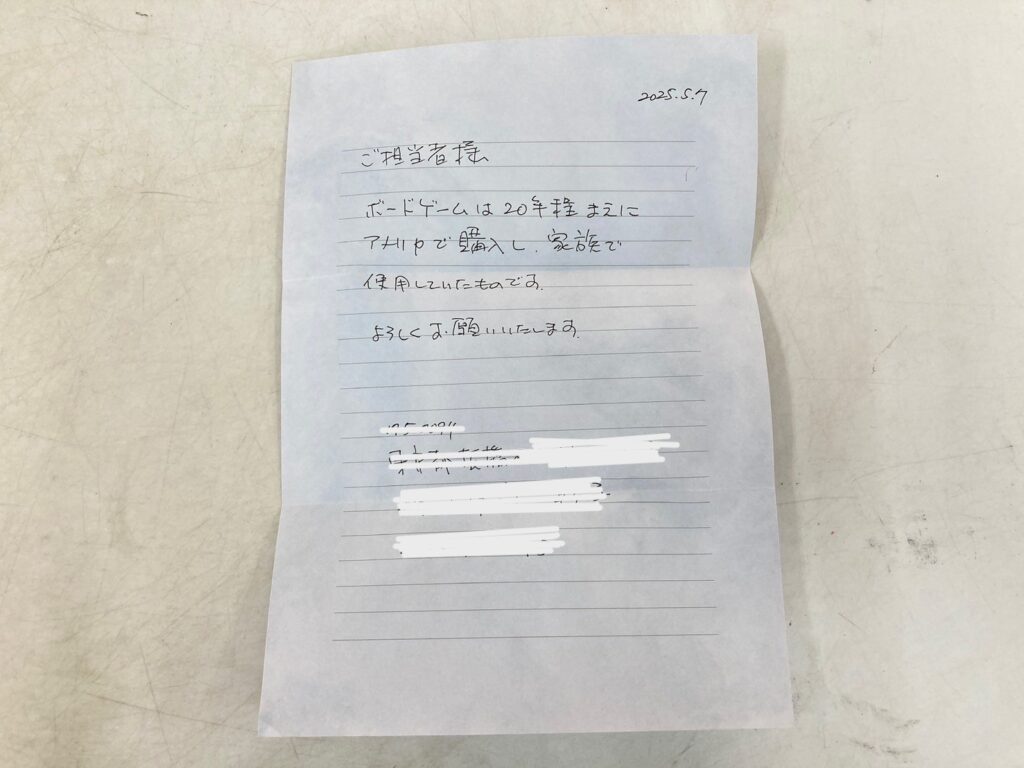 2025.5.7
ご担当者様
ボードゲームは20年程まえに
アメリカで購入し、家族で
使用していたものです。
よろしくお願いいたします。